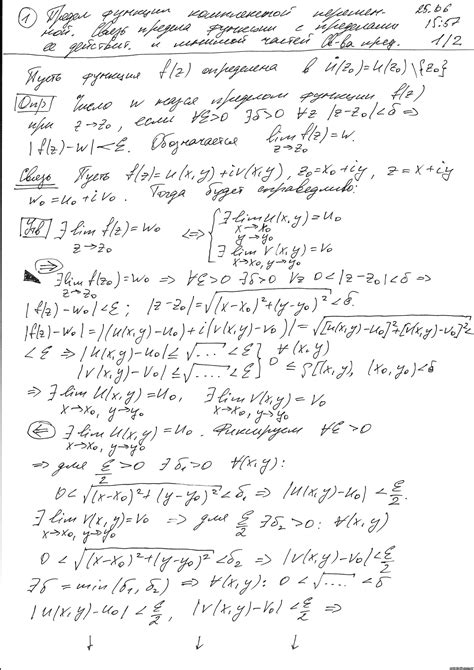 ① Предел функции комплексной перемен- 25.06
ной. Связь предела функции с пределами 15.57
ее действит. и мнимой частей. Св-ва пред. 1/2
Пусть функция f(z) определена в Ů(z₀)=U(z₀)\{z₀}
Опр Число w наз-ся пределом функции f(z)
при z→z₀, если ∀ε>0 ∃δ>0 ∀z |z-z₀|<δ ⇒
|f(z)-w|<ε. Обозначается lim f(z)=w.
z→z₀
Связь Пусть f(z)=u(x,y)+iv(x,y), z₀=x₀+iy, z=x+iy
w₀=u₀+iv₀. Тогда будет справедливо:
Утв ∃ lim f(z)=w₀ ⇔ { ∃ lim u(x,y)=u₀
z→z₀ x→x₀ y→y₀
∃ lim v(x,y)=v₀
x→x₀, y→y₀
⇒
∃ lim f(z₀)=w₀ ⇒ ∀ε>0 ∃δ>0 ∀z 0<|z-z₀|<δ ⇒
z→z₀
|f(z)-w₀|<ε; |z-z₀|=√((x-x₀)²+(y-y₀)²)<δ.
|f(z)-w₀|=|(u(x,y)-u₀)+i(v(x,y)-v₀)|=√([u(x,y)-u₀]²+[v(x,y)-v₀]²)<
<ε ⇒ |u(x,y)-u₀|≤√....<ε } ∀(x,y)
|v(x,y)-v₀|≤√....<ε } 0≤ρ[(x,y), (x₀,y₀)<δ
⇒ ∃ lim u(x,y)=u₀, ∃ lim v(x,y)=v₀
x→x₀, y→y₀ x→x₀, y→y₀
⇐ ∃ lim u(x,y)=u₀. Фиксируем ∀ε>0
x→x₀, y→y₀
⇒ для ε/2>0 ∃δ₁>0 ∀(x,y):
0<√((x-x₀)²+(y-y₀)²)<δ₁ ⇒ |u(x,y)-u₀|<ε/2.
∃ lim v(x,y)=v₀ ⇒ для ε/2 ∃δ₂>0: ∀(x,y)
x→x₀, y→y₀
0<√((x-x₀)²+(y-y₀)²)<δ₂ ⇒ |v(x,y)-v₀|<ε/2
∃δ=min(δ₁,δ₂) ⇒ ∀(x,y): 0<√....<δ
|u(x,y)-u₀|<ε/2, |v(x,y)-v₀|<ε/2 ⇒
↓ ↓ ↓